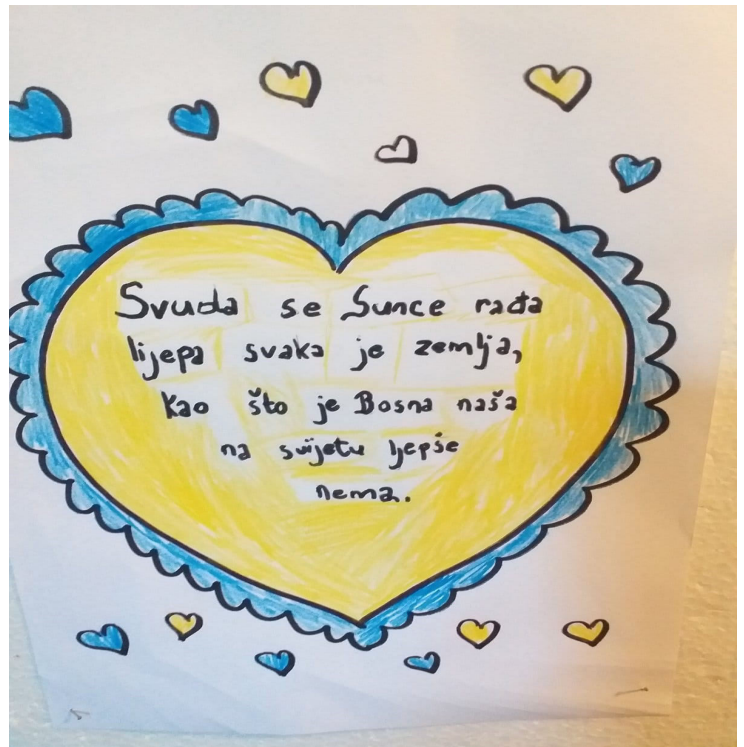 Svuda se Sunce rađa
lijepa svaka je zemlja,
kao što je Bosna naša
na svijetu ljepše
nema.